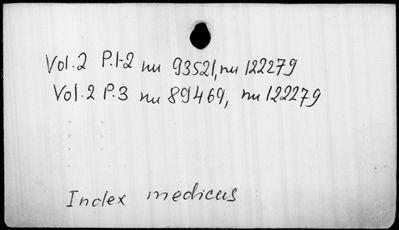 Vol. 2 P.1-2 nu 93521, nu 122279
Vol. 2 P.3 nu 89469, nu 122279
Index medicus